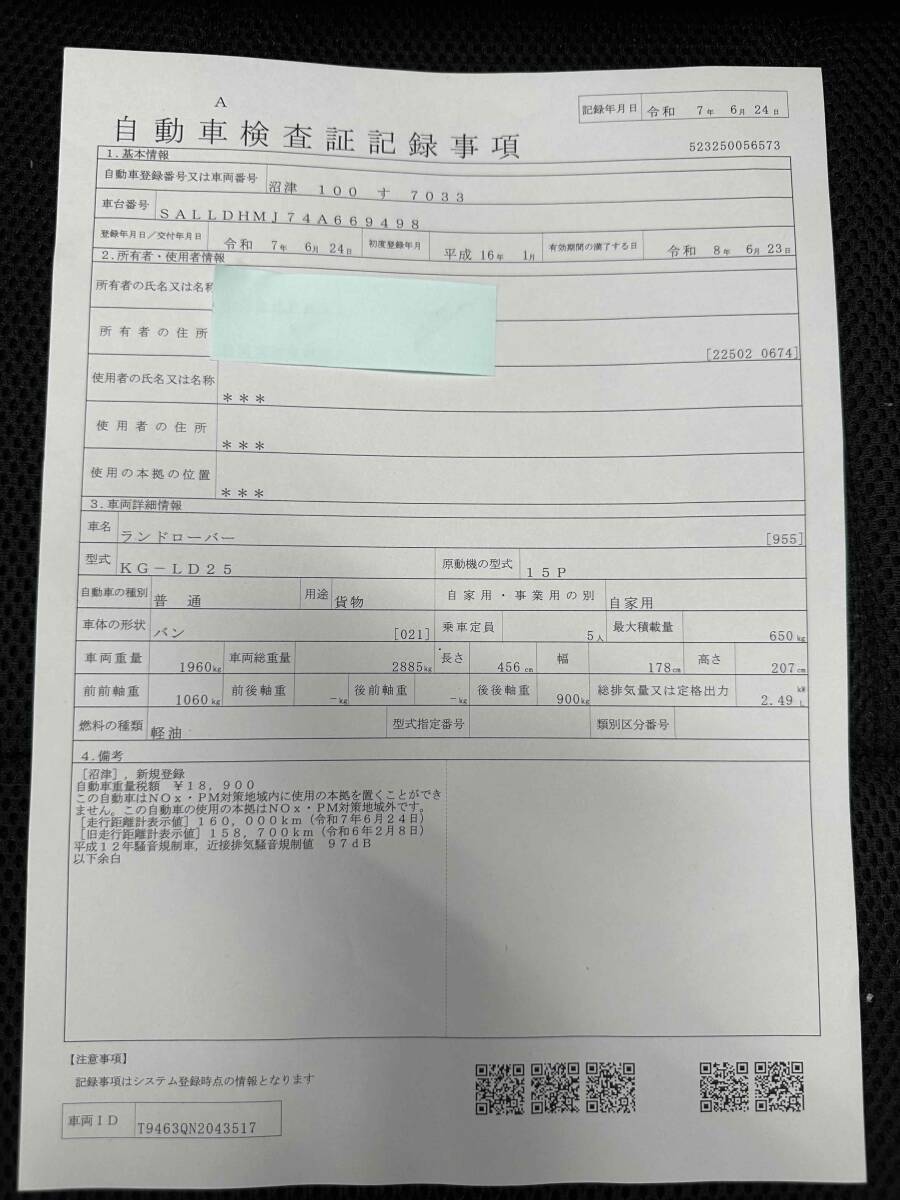 A
記録年月日 令和 7年 6月 24日
自動車検査証記録事項
523250056573
1.基本情報
自動車登録番号又は車両番号 沼津 100 す 7033
車台番号 SALLDHMJ74A669498
登録年月日/交付年月日 令和 7年 6月 24日 初度登録年月 平成 16年 1月 有効期間の満了する日 令和 8年 6月 23日
2.所有者・使用者情報
所有者の氏名又は名称
所有者の住所 [22502 0674]
使用者の氏名又は名称 ***
使用者の住所 ***
使用の本拠の位置 ***
3.車両詳細情報
車名 ランドローバー [955]
型式 KG-LD25 原動機の型式 15P
自動車の種別 普通 用途 貨物 自家用・事業用の別 自家用
車体の形状 バン [021] 乗車定員 5人 最大積載量 650kg
車両重量 1960kg 車両総重量 2885kg 長さ 456cm 幅 178cm 高さ 207cm
前前軸重 1060kg 前後軸重 -kg 後前軸重 -kg 後後軸重 900kg 総排気量又は定格出力 2.49 kW L
燃料の種類 軽油 型式指定番号 類別区分番号
4.備考
[沼津],新規登録
自動車重量税額 ¥18,900
この自動車はNOx・PM対策地域内に使用の本拠を置くことができ
ません。この自動車の使用の本拠はNOx・PM対策地域外です。
[走行距離計表示値]160,000km(令和7年6月24日)
[旧走行距離計表示値]158,700km(令和6年2月8日)
平成12年騒音規制車,近接排気騒音規制値 97dB
以下余白
【注意事項】
記録事項はシステム登録時点の情報となります
車両ID T9463QN2043517